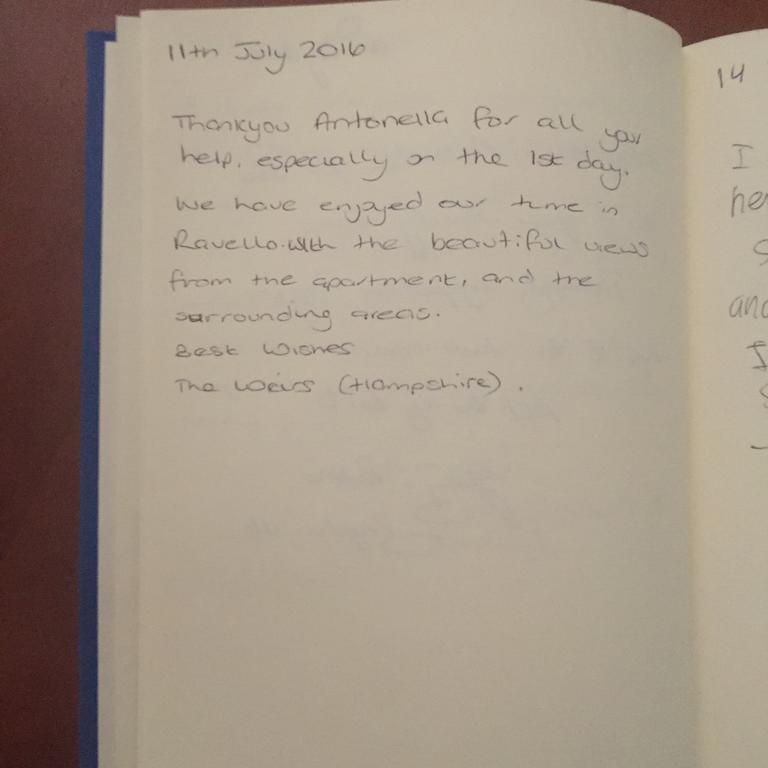 11th July 2016
Thankyou Antonella for all your
help, especially on the 1st day.
We have enjoyed our time in
Ravello. with the beautiful views
from the apartment, and the
surrounding areas.
Best Wishes
The Weirs (Hampshire).
14
I
he
and